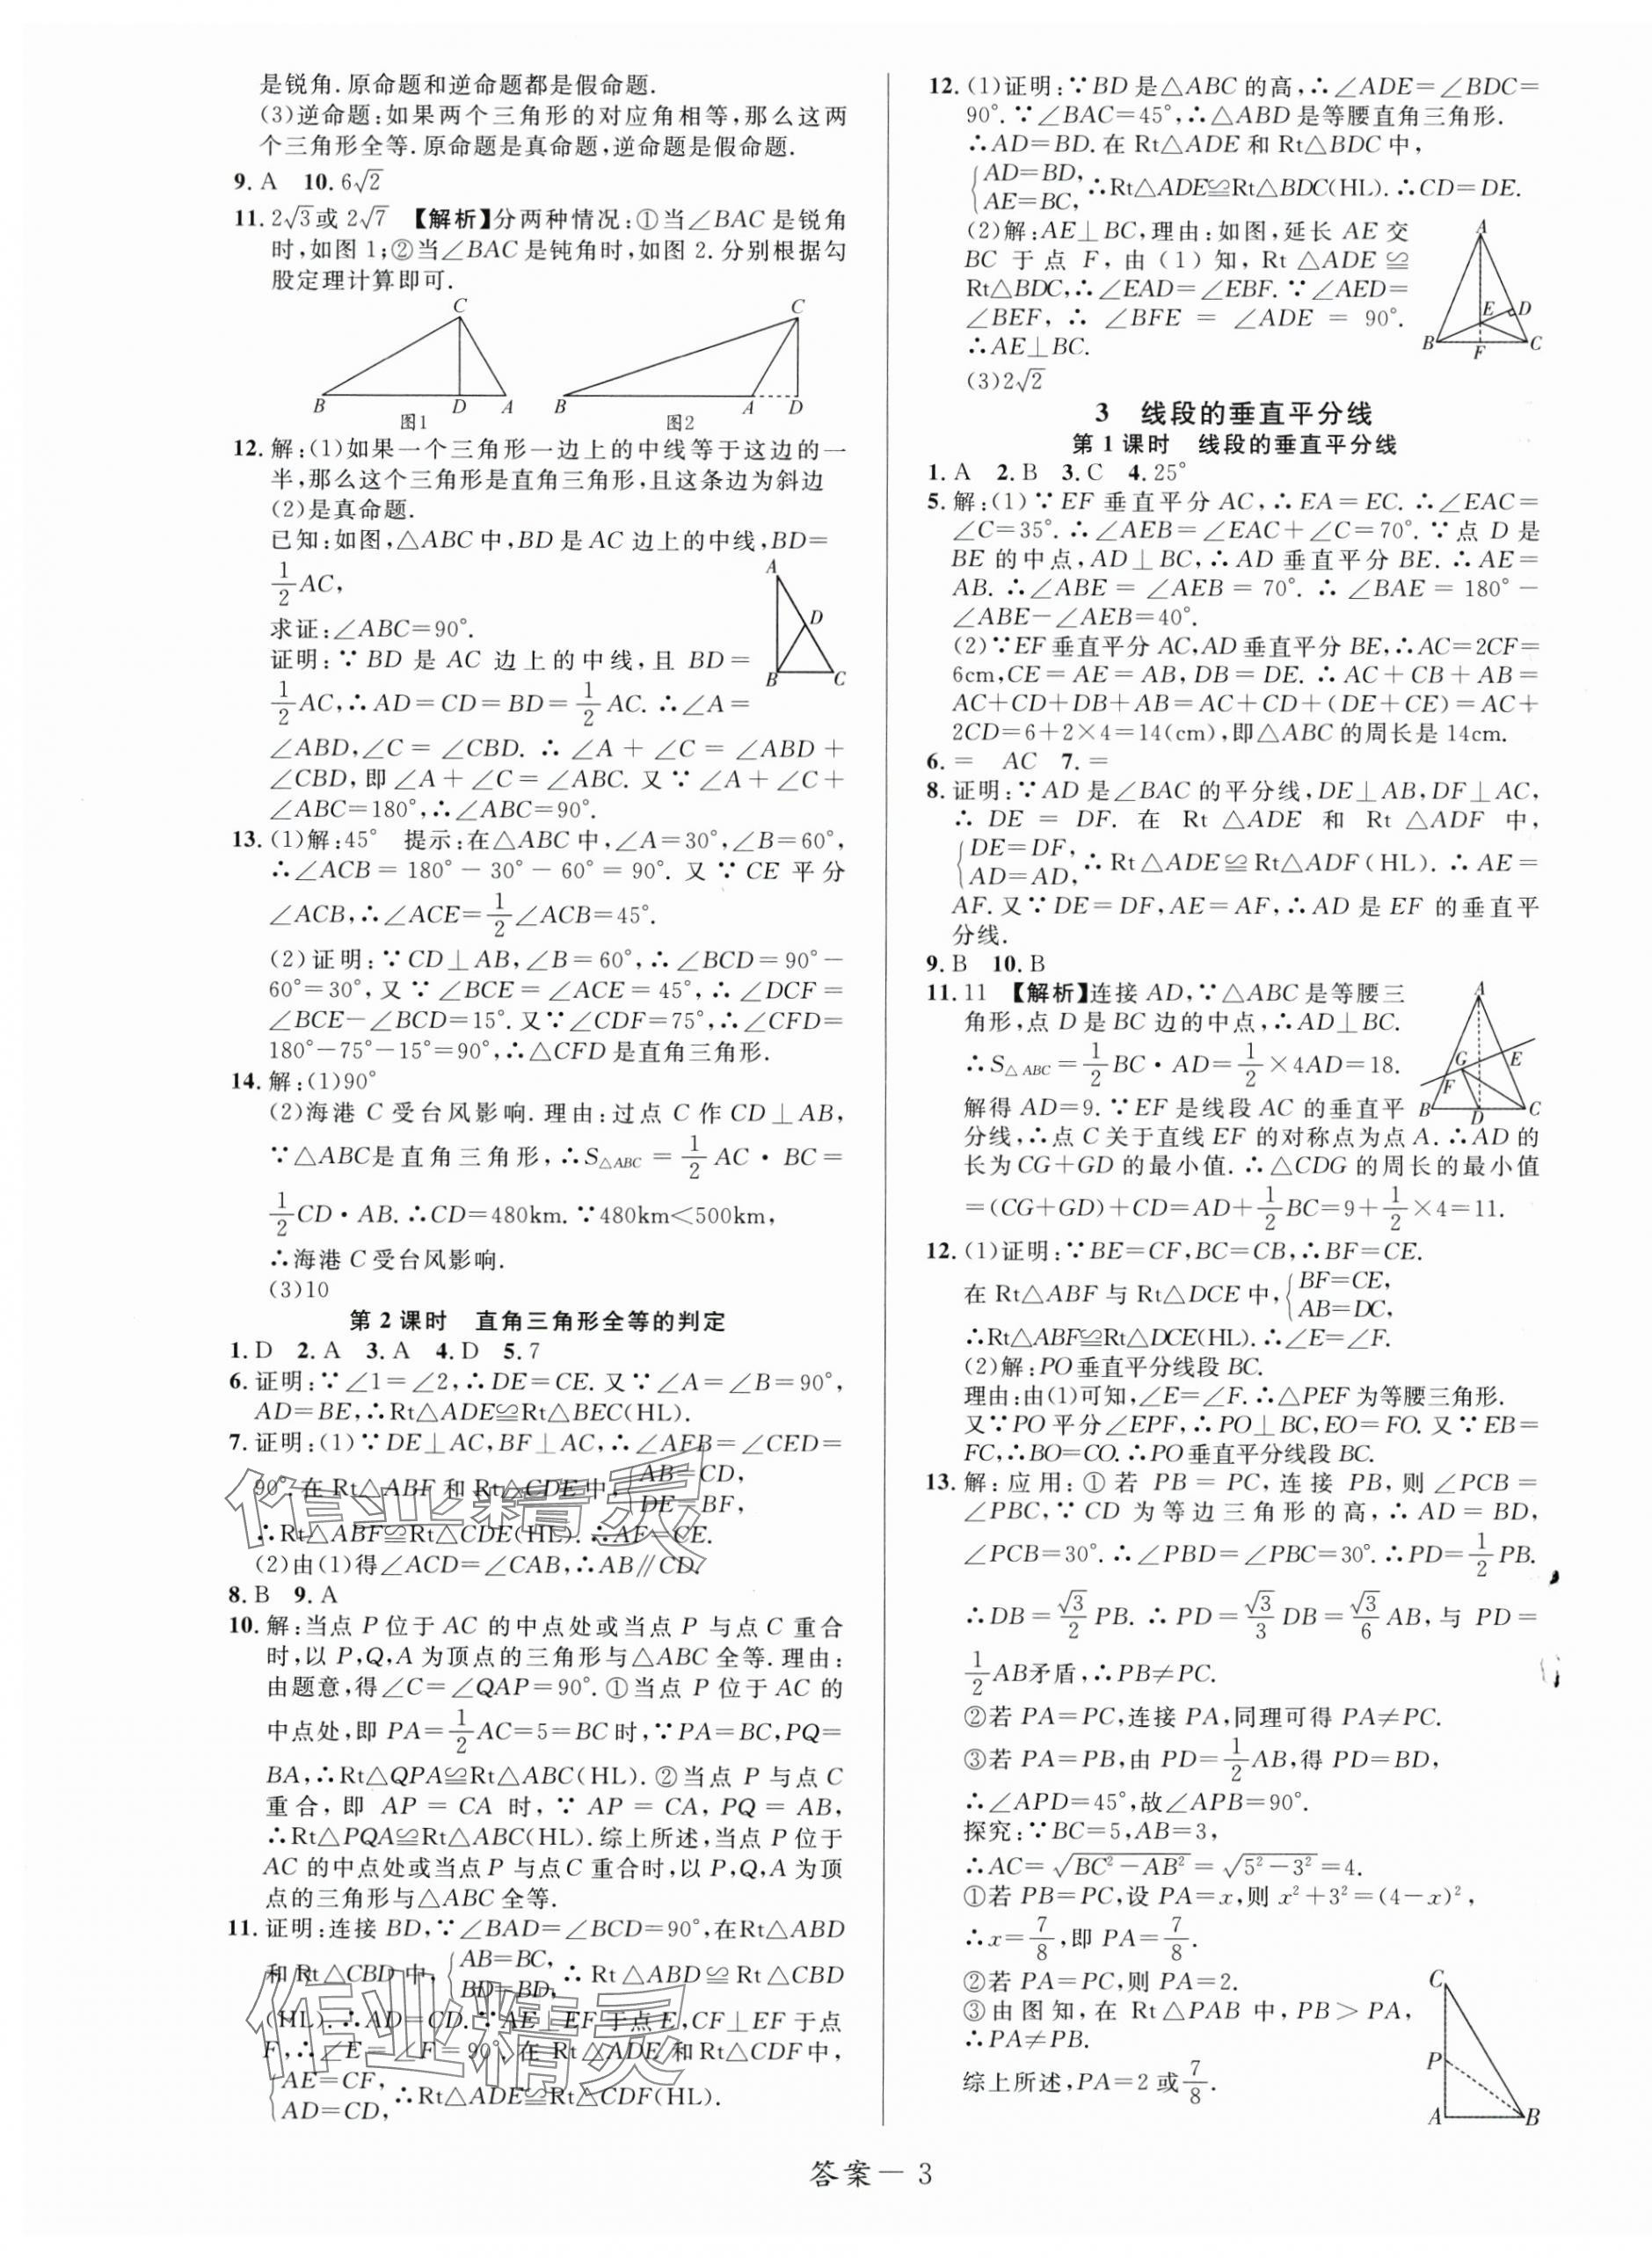 是锐角.原命题和逆命题都是假命题.
(3)逆命题:如果两个三角形的对应角相等,那么这两
个三角形全等.原命题是真命题,逆命题是假命题.
9. A 10. 6√2
11. 2√3或 2√7 【解析】分两种情况:①当∠BAC 是锐角
时,如图 1;②当∠BAC 是钝角时,如图 2.分别根据勾
股定理计算即可.
C
B D A
图1
C
B A D
图2
12. 解:(1)如果一个三角形一边上的中线等于这边的一
半,那么这个三角形是直角三角形,且这条边为斜边
(2)是真命题.
已知:如图,△ABC 中,BD 是 AC 边上的中线,BD=
1/2 AC,
求证:∠ABC=90°.
证明:∵BD 是 AC 边上的中线,且 BD=
1/2 AC,∴AD=CD=BD=1/2 AC.∴∠A=
∠ABD,∠C=∠CBD.∴∠A+∠C=∠ABD+
∠CBD,即∠A+∠C=∠ABC.又∵∠A+∠C+
∠ABC=180°,∴∠ABC=90°.
A
D
B C
13. (1)解:45° 提示:在△ABC 中,∠A=30°,∠B=60°,
∴∠ACB=180°-30°-60°=90°.又∵CE 平分
∠ACB,∴∠ACE=1/2∠ACB=45°.
(2)证明:∵CD⊥AB,∠B=60°,∴∠BCD=90°-
60°=30°,又∵∠BCE=∠ACE=45°,∴∠DCF=
∠BCE-∠BCD=15°.又∵∠CDF=75°,∴∠CFD=
180°-75°-15°=90°,∴△CFD 是直角三角形.
14. 解:(1)90°
(2)海港 C 受台风影响.理由:过点 C 作 CD⊥AB,
∵△ABC是直角三角形,∴S△ABC=1/2 AC·BC=
1/2 CD·AB.∴CD=480km.∵480km<500km,
∴海港 C 受台风影响.
(3)10
第 2 课时 直角三角形全等的判定
1. D 2. A 3. A 4. D 5. 7
6. 证明:∵∠1=∠2,∴DE=CE.又∵∠A=∠B=90°,
AD=BE,∴Rt△ADE≌Rt△BEC(HL).
7. 证明:(1)∵DE⊥AC,BF⊥AC,∴∠AFB=∠CED=
90°.在 Rt△ABF 和 Rt△CDE 中,{AB=CD,
DE=BF,
∴Rt△ABF≌Rt△CDE(HL).∴AF=CE.
(2)由(1)得∠ACD=∠CAB,∴AB∥CD.
8. B 9. A
10. 解:当点 P 位于 AC 的中点处或当点 P 与点 C 重合
时,以 P,Q,A 为顶点的三角形与△ABC 全等.理由:
由题意,得∠C=∠QAP=90°.①当点 P 位于 AC 的
中点处,即 PA=1/2 AC=5=BC 时,∵PA=BC,PQ=
BA,∴Rt△QPA≌Rt△ABC(HL).②当点 P 与点 C
重合,即 AP=CA 时,∵AP=CA,PQ=AB,
∴Rt△PQA≌Rt△ABC(HL).综上所述,当点 P 位于
AC 的中点处或当点 P 与点 C 重合时,以 P,Q,A 为顶
点的三角形与△ABC 全等.
11. 证明:连接 BD,∵∠BAD=∠BCD=90°,在Rt△ABD
和 Rt△CBD 中,{AB=BC,
BD=BD,
∴Rt△ABD≌Rt△CBD
(HL).∴AD=CD.∵AE⊥EF 于点 E,CF⊥EF 于点
F,∴∠E=∠F=90°.在 Rt△ADE 和 Rt△CDF 中,
{AE=CF,
AD=CD,
∴Rt△ADE≌Rt△CDF(HL).
12. (1)证明:∵BD 是△ABC 的高,∴∠ADE=∠BDC=
90°.∵∠BAC=45°,∴△ABD 是等腰直角三角形.
∴AD=BD.在 Rt△ADE 和 Rt△BDC 中,
{AD=BD,
AE=BC,
∴Rt△ADE≌Rt△BDC(HL).∴CD=DE.
(2)解:AE⊥BC,理由:如图,延长 AE 交
BC 于点 F,由(1)知,Rt△ADE≌
Rt△BDC,∴∠EAD=∠EBF.∵∠AED=
∠BEF,∴∠BFE=∠ADE=90°.
∴AE⊥BC.
(3)2√2
A
E D
B F C
3 线段的垂直平分线
第 1 课时 线段的垂直平分线
1. A 2. B 3. C 4. 25°
5. 解:(1)∵EF 垂直平分 AC,∴EA=EC.∴∠EAC=
∠C=35°.∴∠AEB=∠EAC+∠C=70°.∵点 D 是
BE 的中点,AD⊥BC,∴AD 垂直平分 BE.∴AE=
AB.∴∠ABE=∠AEB=70°.∴∠BAE=180°-
∠ABE-∠AEB=40°.
(2)∵EF 垂直平分 AC,AD 垂直平分 BE,∴AC=2CF=
6cm,CE=AE=AB,DB=DE.∴AC+CB+AB=
AC+CD+DB+AB=AC+CD+(DE+CE)=AC+
2CD=6+2×4=14(cm),即△ABC 的周长是 14cm.
6. = AC 7. =
8. 证明:∵AD 是∠BAC 的平分线,DE⊥AB,DF⊥AC,
∴DE=DF.在 Rt△ADE 和 Rt△ADF 中,
{DE=DF,
AD=AD,
∴Rt△ADE≌Rt△ADF(HL).∴AE=
AF.又∵DE=DF,AE=AF,∴AD 是 EF 的垂直平
分线.
9. B 10. B
11. 11 【解析】连接 AD,∵△ABC 是等腰三
角形,点 D 是 BC 边的中点,∴AD⊥BC.
∴S△ABC=1/2 BC·AD=1/2×4AD=18.
解得 AD=9.∵EF 是线段 AC 的垂直平
分线,∴点 C 关于直线 EF 的对称点为点 A.∴AD 的
长为 CG+GD 的最小值.∴△CDG 的周长的最小值
=(CG+GD)+CD=AD+1/2 BC=9+1/2×4=11.
A
G E
F
B D C
12. (1)证明:∵BE=CF,BC=CB,∴BF=CE.
在 Rt△ABF 与 Rt△DCE 中,{BF=CE,
AB=DC,
∴Rt△ABF≌Rt△DCE(HL).∴∠E=∠F.
(2)解:PO 垂直平分线段 BC.
理由:由(1)可知,∠E=∠F.∴△PEF 为等腰三角形.
又∵PO 平分∠EPF,∴PO⊥BC,EO=FO.又∵EB=
FC,∴BO=CO.∴PO 垂直平分线段 BC.
13. 解:应用:①若 PB=PC,连接 PB,则∠PCB=
∠PBC,∵CD 为等边三角形的高,∴AD=BD,
∠PCB=30°.∴∠PBD=∠PBC=30°.∴PD=1/2 PB.
∴DB=√3/2 PB.∴PD=√3/3 DB=√3/6 AB,与 PD=
1/2 AB矛盾,∴PB≠PC.
②若 PA=PC,连接 PA,同理可得 PA≠PC.
③若 PA=PB,由 PD=1/2 AB,得 PD=BD,
∴∠APD=45°,故∠APB=90°.
探究:∵BC=5,AB=3,
∴AC=√(BC²-AB²)=√(5²-3²)=4.
①若 PB=PC,设 PA=x,则 x²+3²=(4-x)²,
∴x=7/8,即 PA=7/8.
②若 PA=PC,则 PA=2.
③由图知,在 Rt△PAB 中,PB>PA,
∴PA≠PB.
综上所述,PA=2 或7/8.
C
P
A B
答案－3
作业精灵
作业精灵